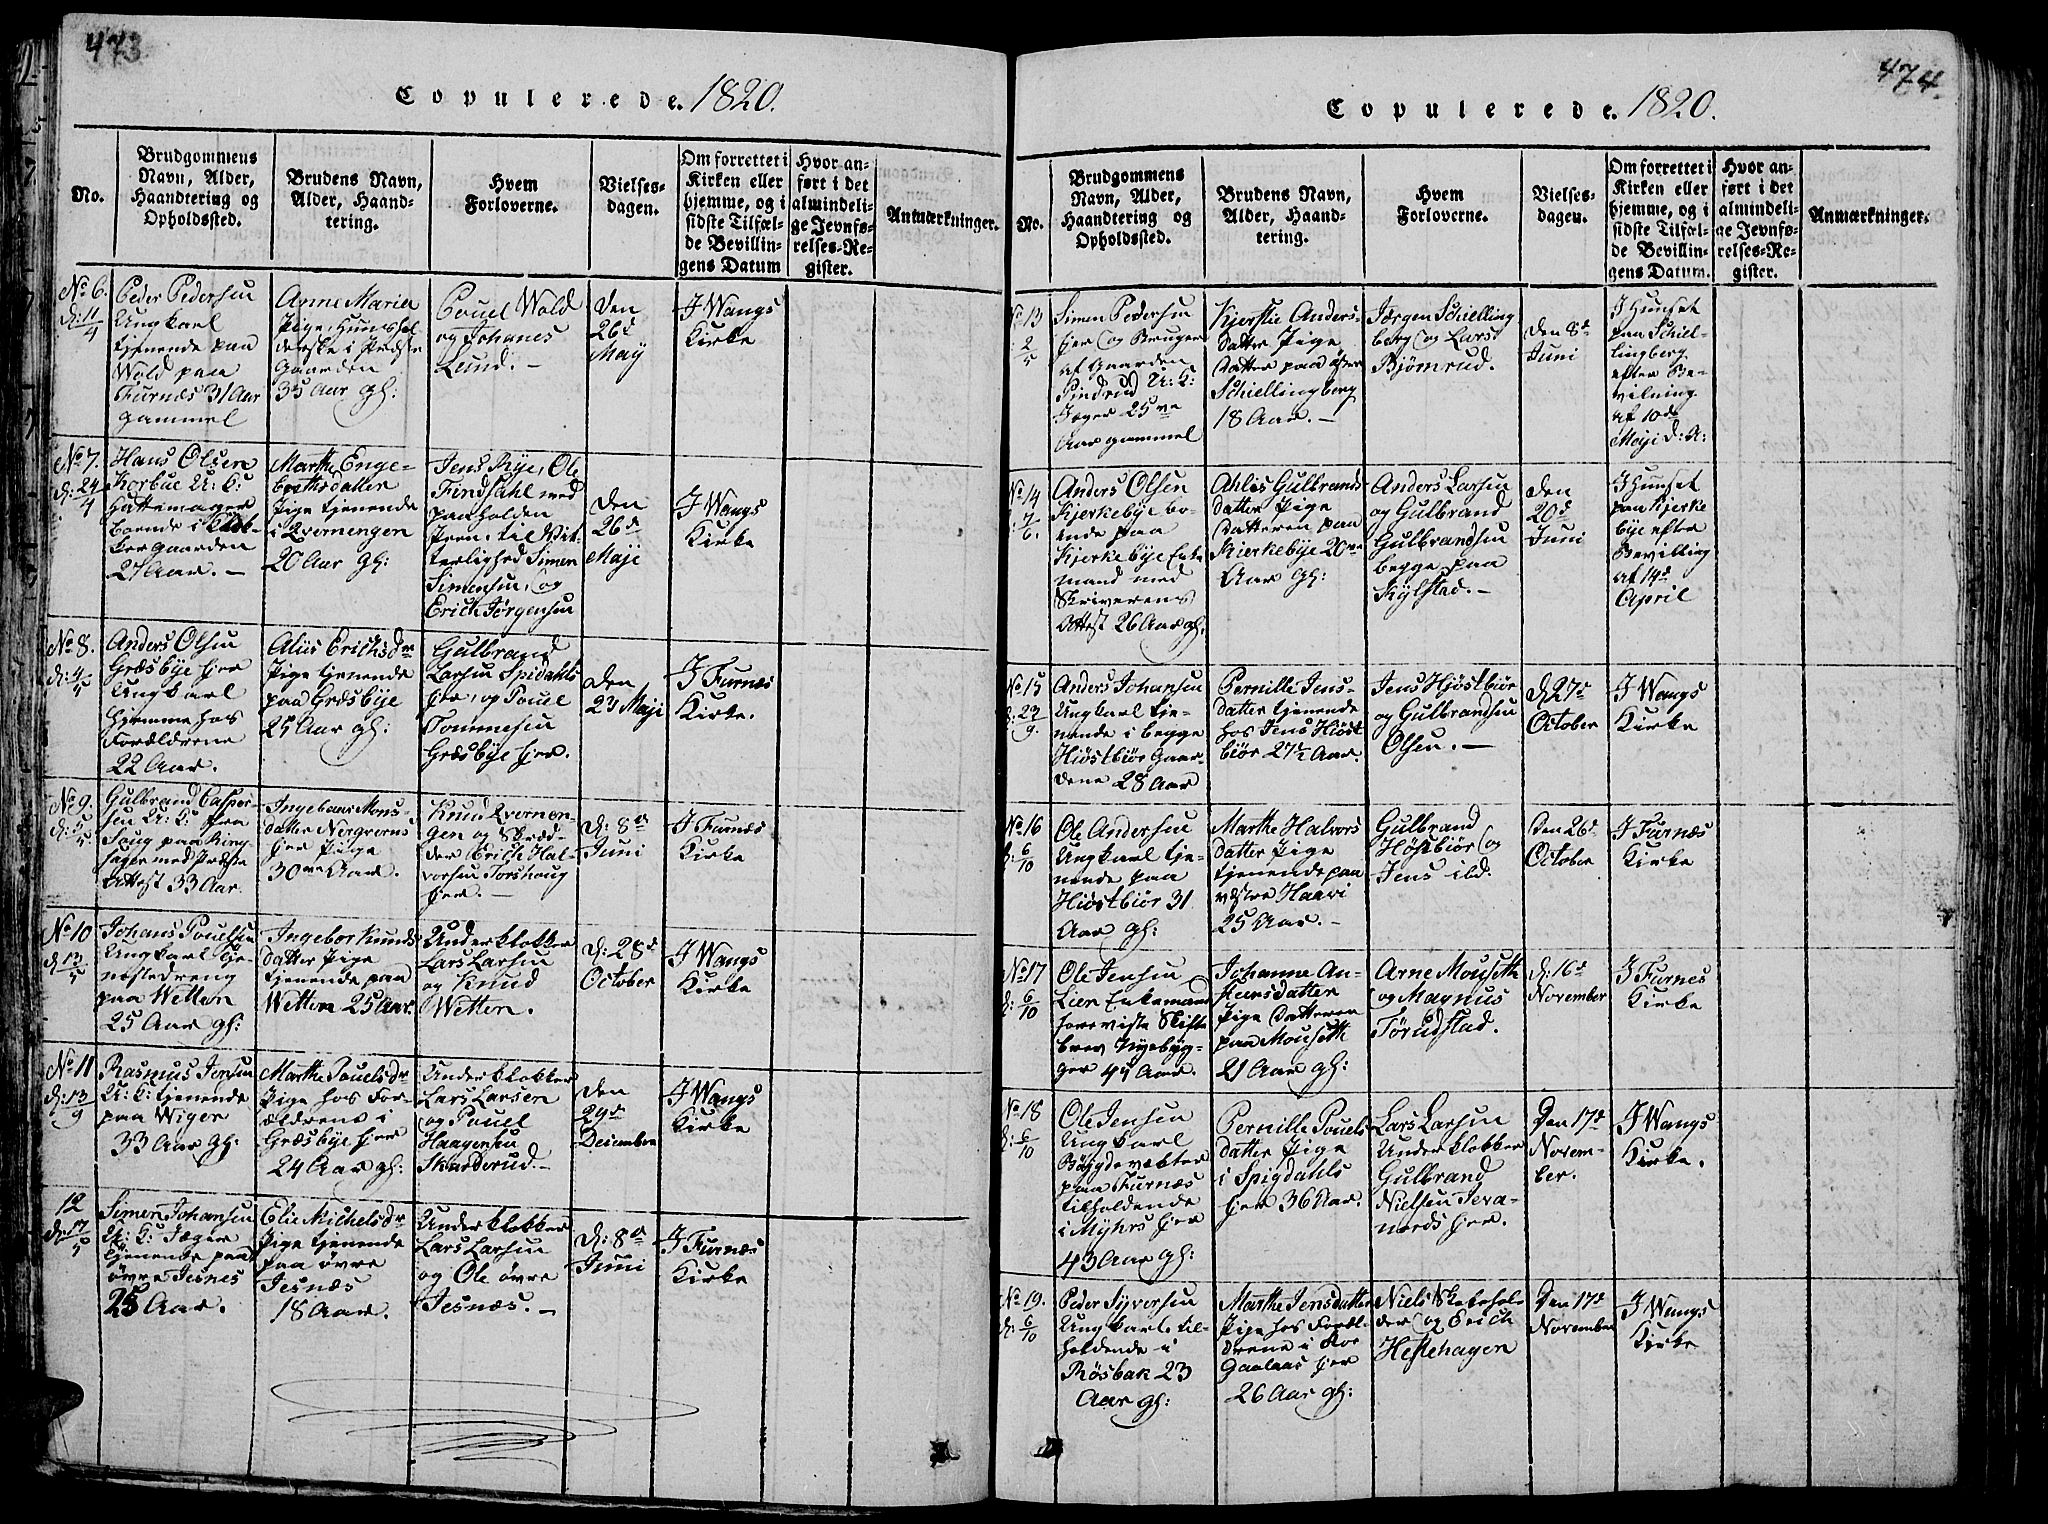 473
Copulerede. 1820.
No.
Brudgommens
Navn, Alder,
Haandtering og
Opholdssted.
Brudens Navn,
Alder, Haand-
tering.
Hvem
Forloverne.
Vielses-
dagen.
Om forrettet i
Kirken eller
hjemme, og i
sidste Tilfæl-
de Bevillin-
gens Datum
Hvor an-
ført i det
almindeli-
ge Jevnfø-
relses-Re-
gister.
Anmærkninger.
No 6.
d: 11/4
Peder Pedersen
Ungkarl
tjenende paa
Wold paa
Furnæs 31 Aar
gammel
Anne Maria
Pige, Huushol
derske i Præste
Gaarden
35 Aar gl:
Pouel Wold
og Johanes
Lund. -
Den
26d
May
I Wangs
Kirke
No 7.
d: 24/4
Hans Olsen
Korbue U: K:
Hattemager
boende i
gaarden
27 Aar. -
Marthe Enge-
brettsdatter
Pige tjenende
i Qvernengen
20 Aar gl:
Jens Rye, Ole
Findsahl med
paaholden
Pen, til Vit-
terlighed Simen
Simensen, og
Erich Jørgensen
Den
26d
Maji
I Wangs
Kirke
No 8.
d: 4/5
Anders Olsen
Græsbye her
Ungkarl
hjemme hos
Forældrene
22 Aar.
Aliis Erichsdr
Pige tjenende
paa Græsbye
25 Aar gl:
Gulbrand
Larsen Spidahls
her, og Pouel
Tommesen
Græsbye her.
Den
23 Maji
I Furnæs
Kirke.
No 9.
d: 5/5
Gulbrand Casper-
sen U: K: fra
Saug paa Ring-
sager med Præste
Attest 33 Aar.
Ingebaar Mons-
datter Nergverns
her Pige
30ve Aar.
Knud Qvernen-
gen og Skræd-
der Erich Hal-
vorsen Torshoug
her. -
d: 8de
Juni
I Furnæs
Kirke
No 10
d: 13/5
Johans Pouelsen
Ungkarl Tje-
næstedreng
paa Wetten
25 Aar gl:
Ingebor Knuds
datter Pige
tjenende paa
Wetten 25 Aar
Underklokker
Lars Larsen
og Knud
Wetten.
d: 28d
October
I Wangs
Kirke
No 11
d: 13/9
Rasmus Jensen
U: K: tjenende
paa Wiger
33 Aar gl:
Marthe Pouelsdr
Pige hos For-
ældrene i
Græsbye her
24 Aar gl:
Underklokker
Lars Larsen
og Pouel
Haagensen
Skarderud. -
Den
29de
December
I Wangs
Kirke
12
d: 17/5
Simen Johansen
U: K: Jæger
tjenende paa
øvre Jesnes
25 Aar.
Elie Michelsdr
Pige tjenende
paa øvre
Jesnæs
18 Aar.
Underklokker
Lars Larsen
og Ole øvre
Jesnæs. -
d: 8de
Juni
I Furnæs
Kirke
474.
Copulerede. 1820.
No.
Brudgommens
Navn, Alder,
Haandtering og
Opholdssted.
Brudens Navn,
Alder, Haand-
tering.
Hvem
Forloverne.
Vielses-
dagen.
Om forrettet i
Kirken eller
hjemme, og i
sidste Tilfæl-
de Bevillin-
gens Datum.
Hvor an-
ført i det
almindeli-
ge Jevnfø-
relses-Re-
gister.
Anmærkninger.
No 13
2/5
Simen Pedersen
her og Bruger
af Gaarden
Pindrud U: K:
Jæger 25ve
Aar gammel
Kjerstie Anders-
datter Pige
Datter paa øvre
Schiellingberg
18 Aar. -
Jørgen Schielling
berg og Lars
Bjørnrud.
Den 8d
Juni
I Huuset
paa Schiel-
lingberg
efter Be-
vilning
af 10de
Maji d: A:
No 14
7/6.
Anders Olsen
Kjerkebye bo-
ende paa
Kjerkebye Enke
mand med
Skriverens
Attest 26 Aar gl:
Ahlis Gulbrands
datter Pige
Datteren paa
Kierkebye 20ve
Aar gl:
Anders Larsen
og Gulbrand
Gulbrandsen
begge paa
Kylstad. -
Den
20d
Juni
I Huuset
paa Kjerke
bye efter
Bevilling
af 14d
April
No 15
d: 22/9.
Anders Johansen
Ungkarl tje-
nende i begge
Hiøstbiør Gaar
dene 28 Aar
Pernille Jens-
datter tjenende
hos Jens Hiøst
biør 27½ Aar.
Jens Hjøstbiør
og Gulbrandsen
Olsen. -
d: 27de
October
I Wangs
Kirke
No 16
d: 6/10
Ole Andersen
Ungkarl tje-
nende paa
Hiøstbiør 31
Aar gl:
Marthe Halvors
datter Pige
tjenende paa
vestre Haavi
25 Aar. -
Gulbrand
Høstbiør og
Jens ibd.
Den 26d
October
I Furnæs
Kirke
No 17
d: 6/10
Ole Jensen
Lien Enkemand
foreviste Skifte
brev Nyebyg-
ger 45 Aar.
Johanne An-
steensdatter
Pige Datteren
paa Mouseth
21 Aar gl:
Arne Mouseth
og Magnus
Tørudstad.
d: 16d
November
I Furnes
Kirke
No 18
d: 6/10
Ole Jensen
Ungkarl
Bøygdevægter
paa Furnæs
tilholdende
i Myhrs her
43 Aar gl:
Pernille Pouels
datter Pige
i Spigdahls
her 36 Aar.
Lars Larsen
Underklokker
Gulbrand
Nielsen Jeva-
nords her.
Den 17d
Novem-
ber.
I Wangs
Kirke.
No 19.
d: 6/10
Peder Syversen
Ungkarl til-
holdende i
Røsbak 23
Aar gl:
Marthe Jensdatter
Pige hos Foræl-
drene i
Gaalaas her
26 Aar gl:
Niels Skolehol-
der og Erich
Heslehagen
Den 17d
November
I Wangs
Kirke